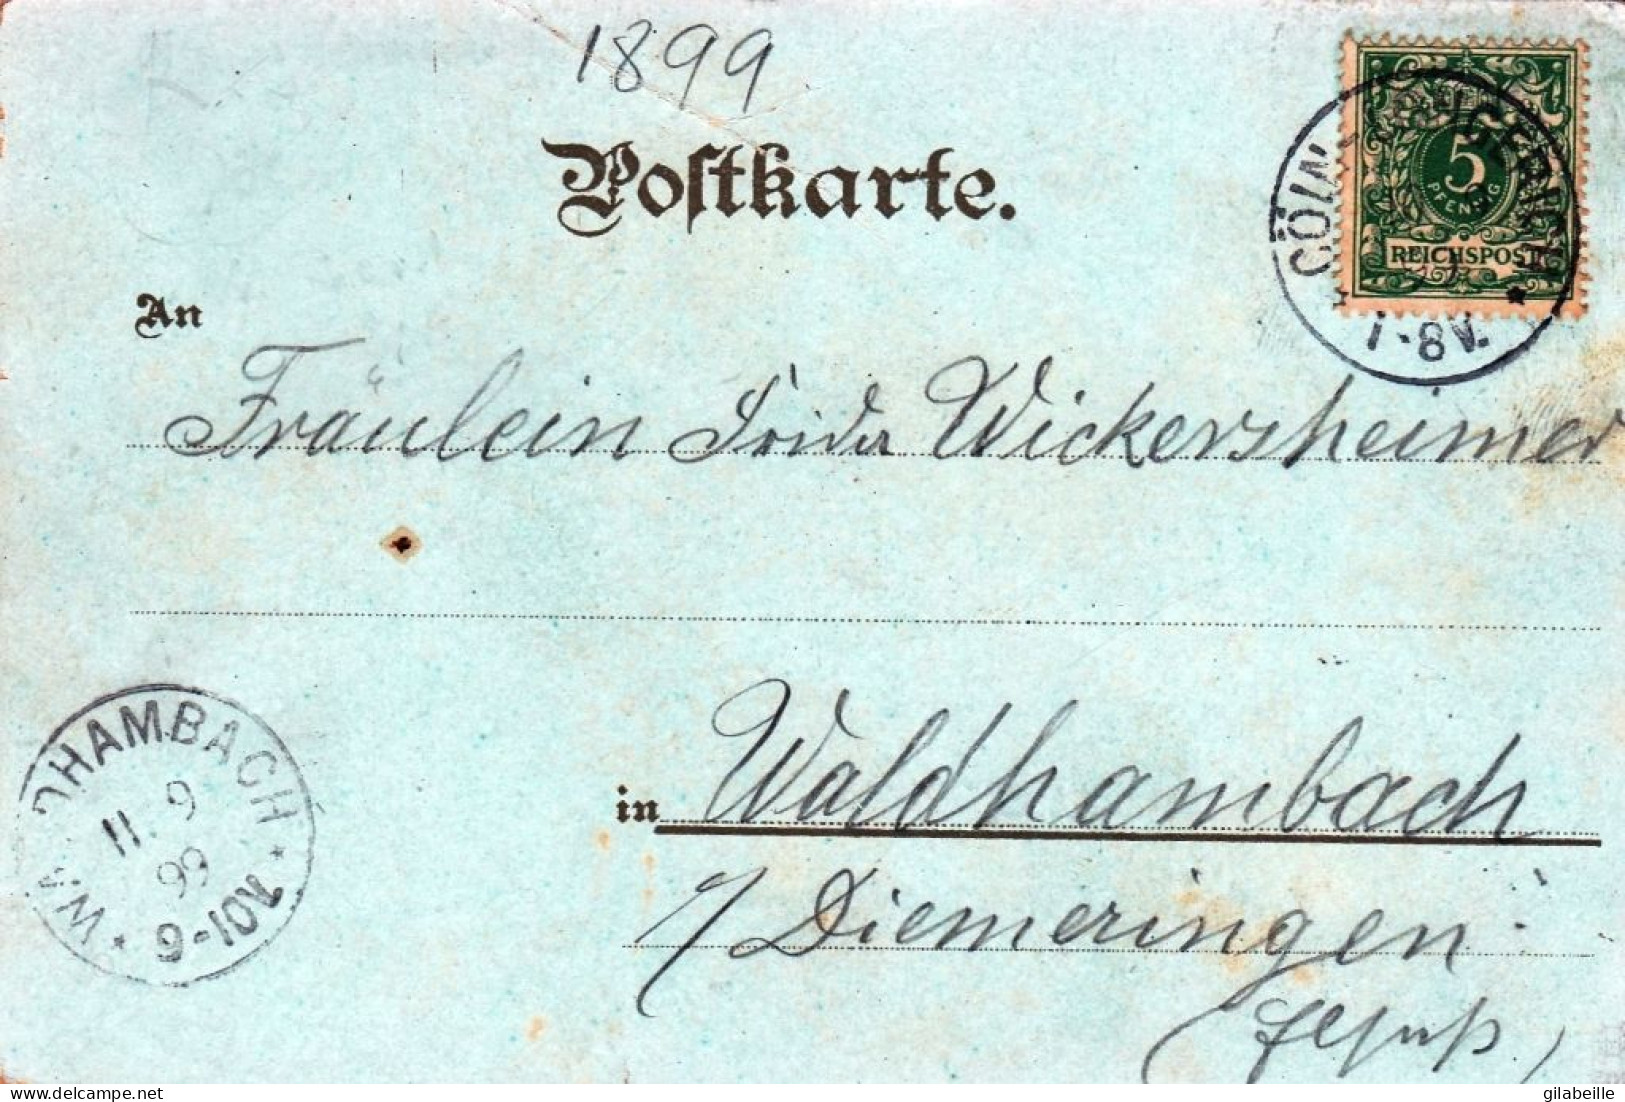 1899
Postkarte.
5
PFENNIG
REICHSPOST
CÖLN-
7-8V.
An
Fräulein Frida Wickersheimer
WALDHAMBACH
11 9
99
9-10V.
in Waldhambach
/ Diemeringen
delcampe.net
gilabeille